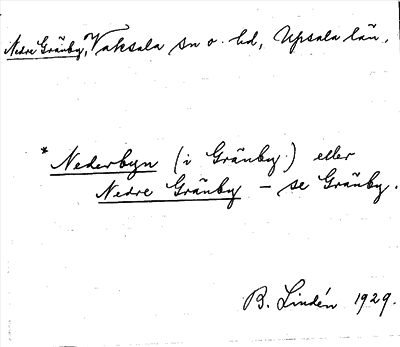 Nedre Gränby, Vaksala sn o. hd, Upsala län.
* Nederbyn (i Gränby) eller
Nedre Gränby – se Gränby.
B. Lindén 1929.